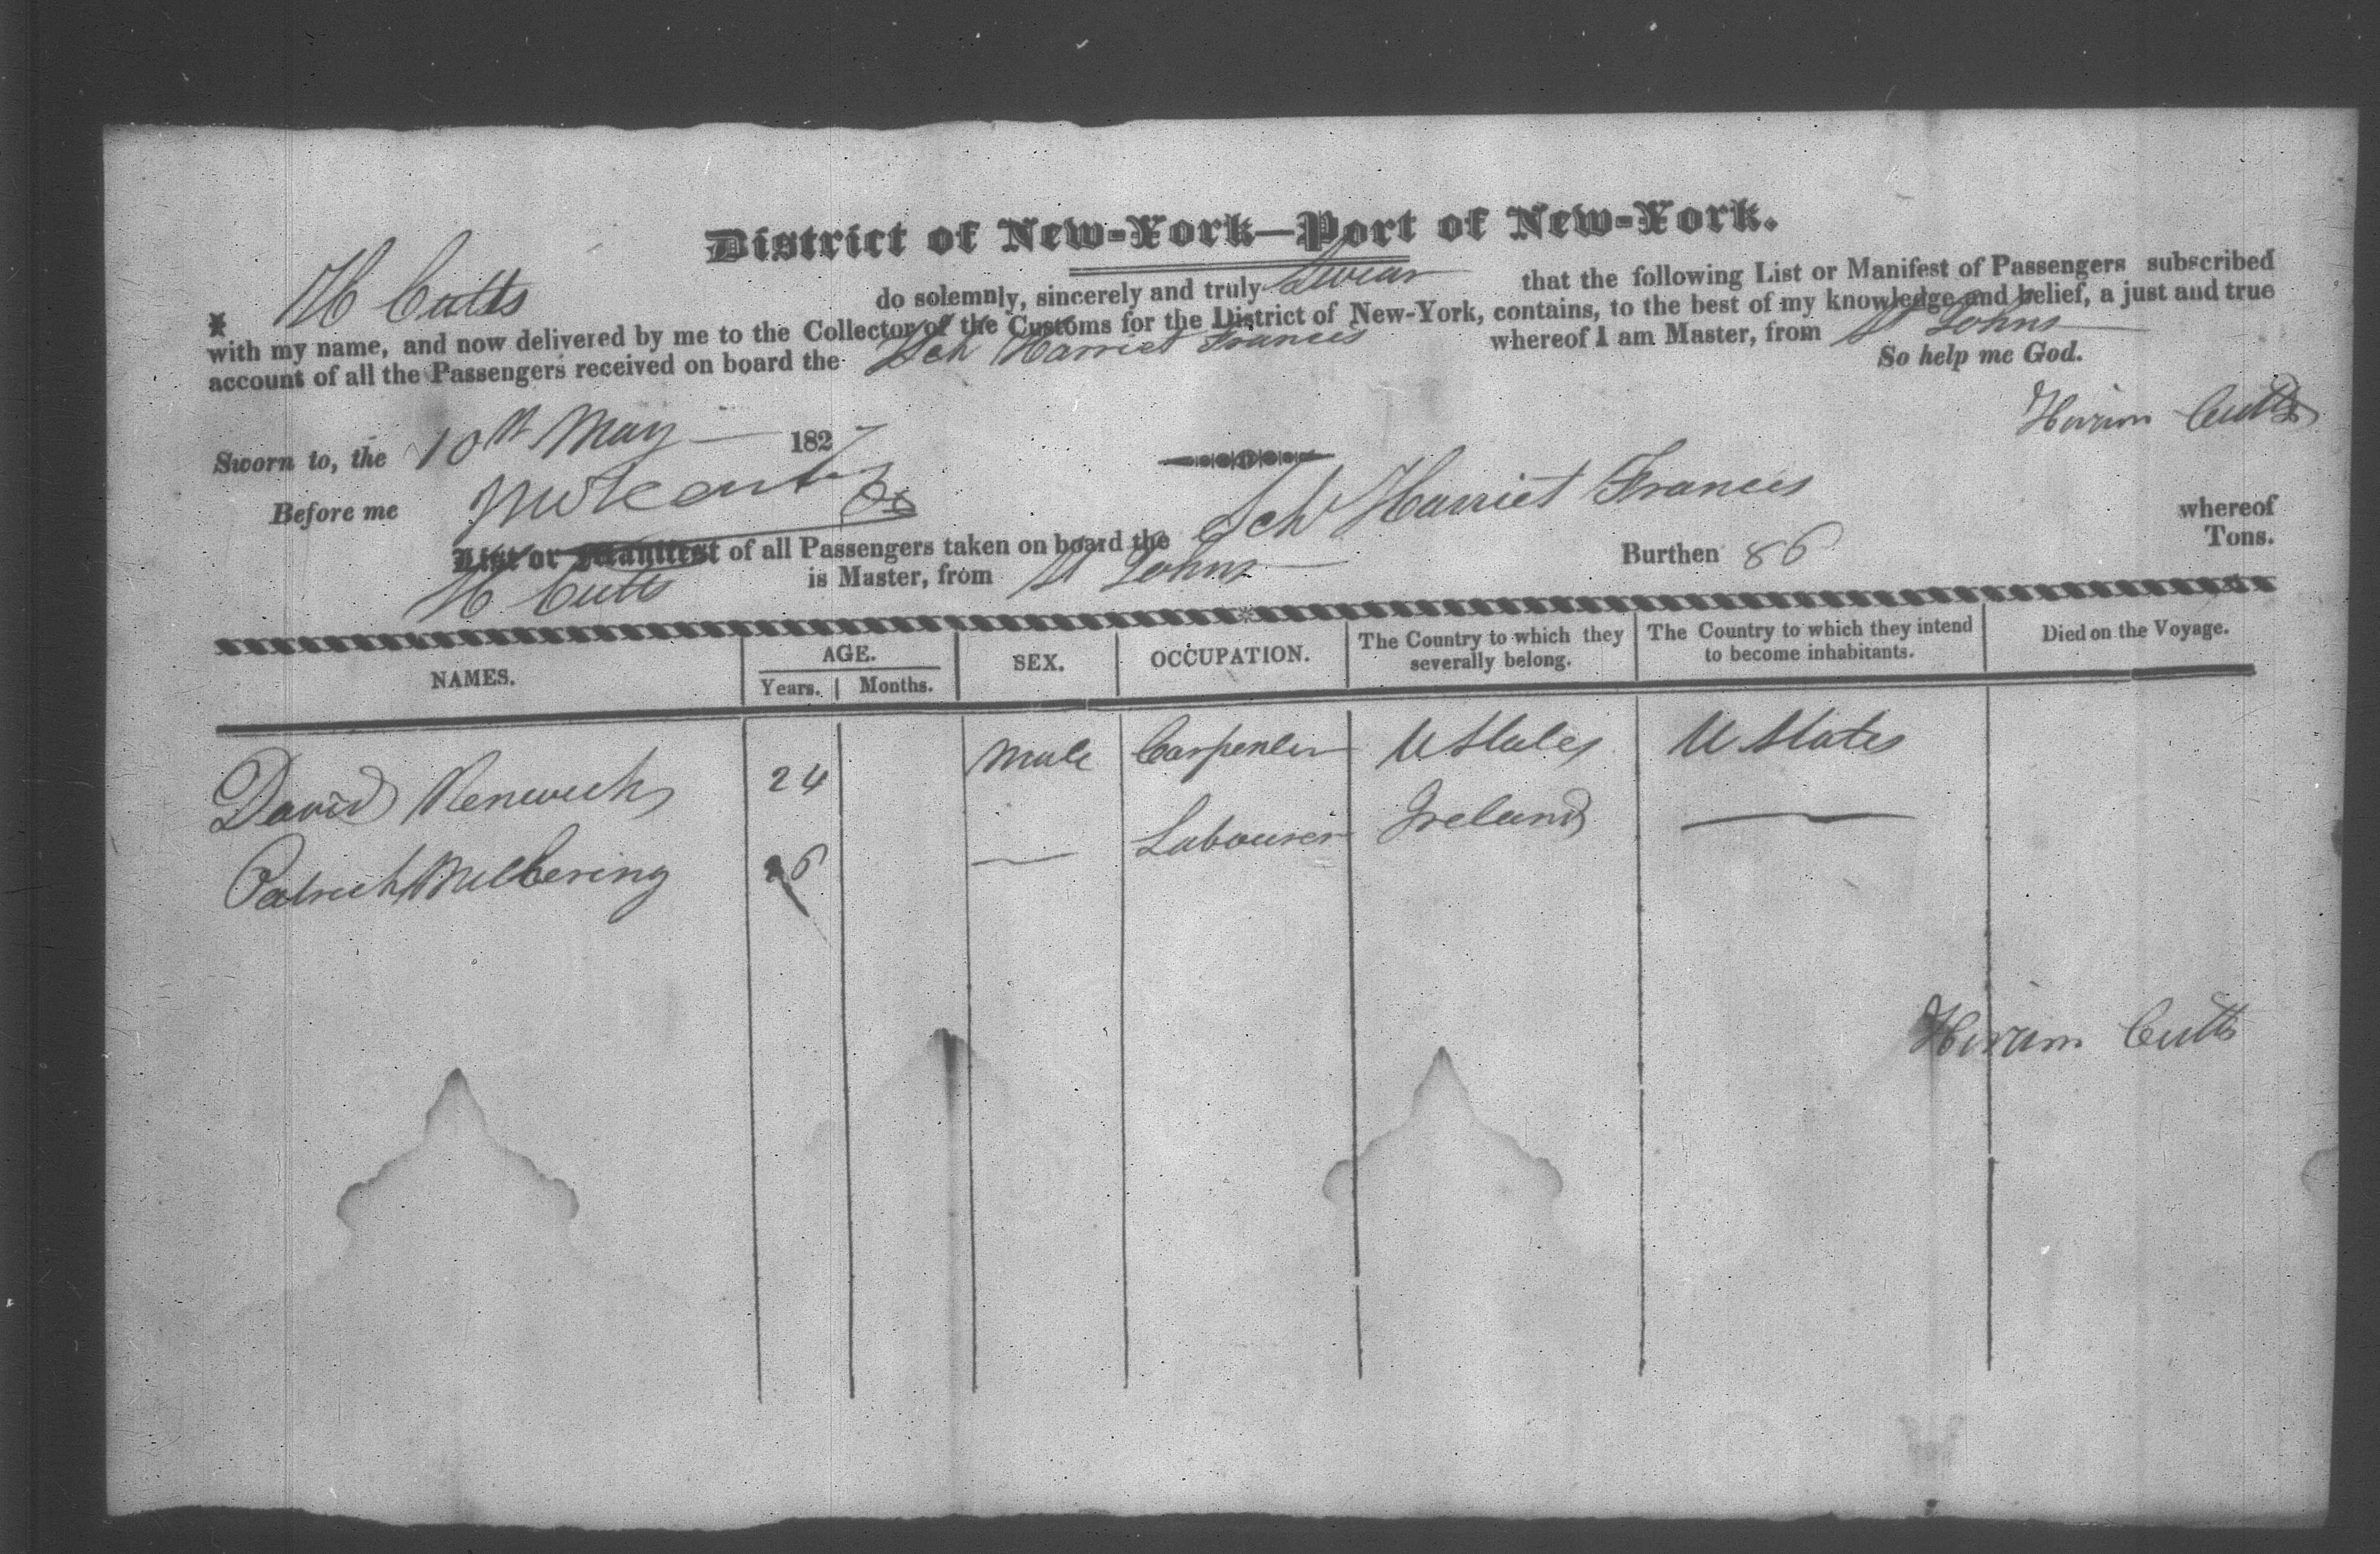 District of New-York—Port of New-York.
I, H Cutts do solemnly, sincerely and truly Swear that the following List or Manifest of Passengers subscribed
with my name, and now delivered by me to the Collector of the Customs for the District of New-York, contains, to the best of my knowledge and belief, a just and true
account of all the Passengers received on board the Sch Harriet Frances whereof I am Master, from St Johns
So help me God.
Sworn to, the 10th May 1827
Hiram Cutts
Before me
List or Manifest of all Passengers taken on board the Sch Harriet Frances whereof
H Cutts is Master, from St Johns Burthen 86 Tons.
NAMES. AGE. SEX. OCCUPATION. The Country to which they severally belong. The Country to which they intend to become inhabitants. Died on the Voyage.
Years. Months.
David Renwick 24 Male Carpenter U States U States
Patrick 26 — Labourer Ireland —
Hiram Cutts